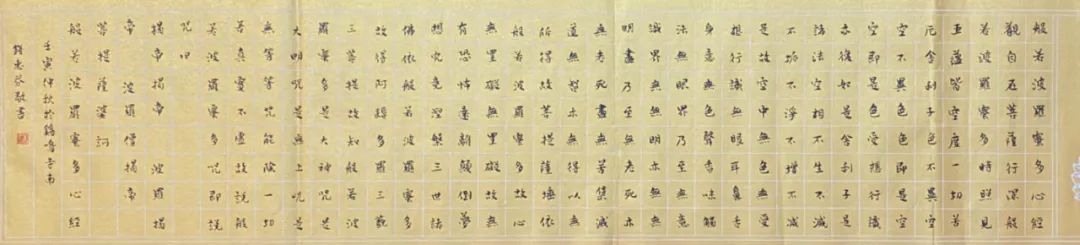 般若波羅蜜多心經
觀自在菩薩行深般
若波羅蜜多時照見
五蘊皆空度一切苦
厄舍利子色不異空
空不異色色即是空
空即是色受想行識
亦復如是舍利子是
諸法空相不生不滅
不垢不淨不增不減
是故空中無色無受
想行識無眼耳鼻舌
身意無色聲香味觸
法無眼界乃至無意
識界無無明亦無無
明盡乃至無老死亦
無老死盡無苦集滅
道無智亦無得以無
所得故菩提薩埵依
般若波羅蜜多故心
無罣礙無罣礙故無
有恐怖遠離顛倒夢
想究竟涅槃三世諸
佛依般若波羅蜜多
故得阿耨多羅三藐
三菩提故知般若波
羅蜜多是大神咒是
大明咒是無上咒是
無等等咒能除一切
苦真實不虛故說般
若波羅蜜多咒即說
咒曰
揭帝揭帝 波羅揭
帝 波羅僧揭帝
菩提薩婆訶
般若波羅蜜多心經
壬寅仲秋於
敬書